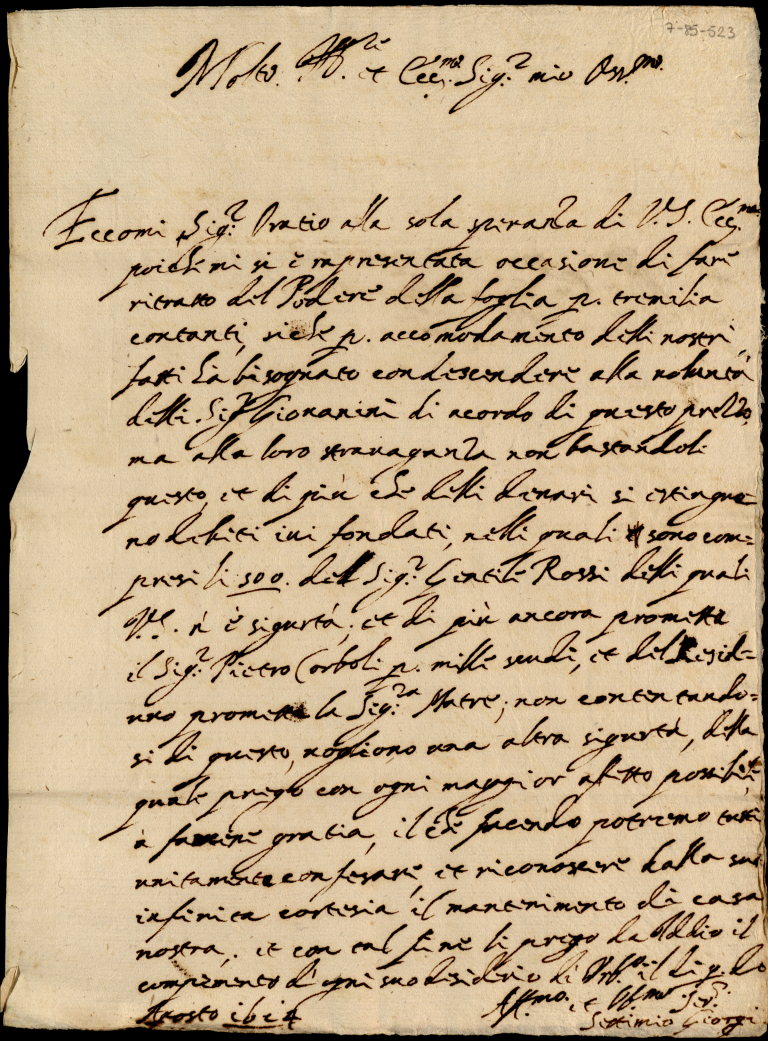 7-85-523
Molto Ill.re et Ecc.mo Sig.r mio Oss.mo
Eccomi Sig.r Oratio alla sola speranza di V.S. Ecc.ma
poiche mi si è rapresentata occasione di fare
ritratto del Podere della foglia p. tremilia
contanti, siche p. accomodamento delli nostri
fatti hà bisognato condescendere alla volontà
delli Sig.ri Giovanini di acordo di questo prezzo,
ma alla loro stravaganza non bastandoli
questo, et di più che delli denari si estingue-
no debiti ivi fondati, nelli quali sono com=
presi li 500. del Sig.r Gentile Rossi delli quali
V.S. n'è sigurtà, et di più ancora promette
il Sig.r Pietro Corboli p. mille scudi, et del Resid=
uuo promette la Sig.ra Matre, non contentando=
si di questo, vogliono una altra sigurtà, della
quale prego con ogni maggior afetto possibile
à farmene gratia, il che facendo potremo tutti
unitamente confesare, et riconoscere dalla sua
infinita cortesia il mantenimento di casa
nostra, et con tal fine li prego da Iddio il
compimento d'ogni suo desiderio di Urb.o il dì 9. do
Agosto 1614
Aff.mo et Obb.mo Ser.
Settimio Giorgi